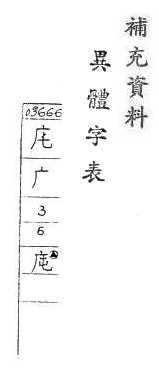 補充資料
異體字表
03666
㡯
广
3
6